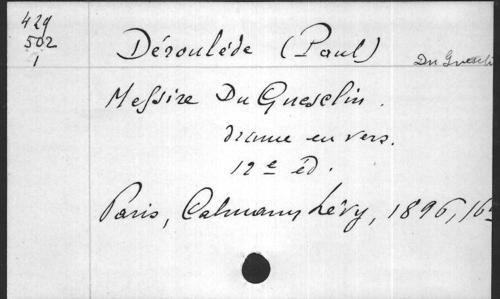 429
502
1
Déroulède (Paul)
Du Guesclin
Messire Du Guesclin.
drame en vers.
12e éd.
Paris, Calmann Lévy, 1896, 16º